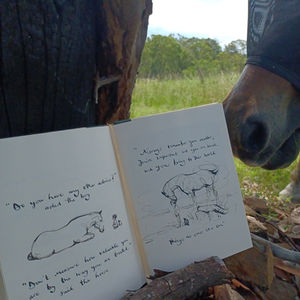 "Do you have any other advice?"
asked the boy
"Don't measure how valuable you
are by the way you are treated"
said the horse.
"Always remember you matter,
you're important and you are loved,
and you bring to this world
things no one else can."